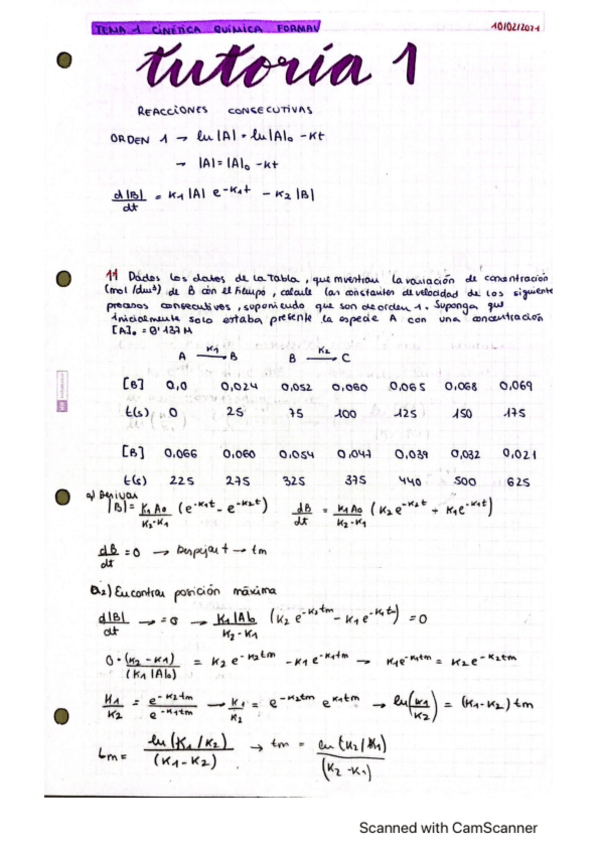 TEMA 1 CINÉTICA QUÍMICA FORMAL
10/02/2021
tutoría 1
REACCIONES CONSECUTIVAS
ORDEN 1 → ln|A| = ln|A|₀ - Kt
→ |A| = |A|₀ - Kt
d|B|/dt = K₁|A| e^-K₁t - K₂|B|
11 Dados los datos de la Tabla, que muestran la variación de concentración
(mol/dm³) de B con el tiempo, calcule las constantes de velocidad de los siguiente
procesos consecutivos, suponiendo que son de orden 1. Suponga que
inicialmente solo estaba presente la especie A con una concentración
[A]₀ = 0'137 M
A —K₁→ B B —K₂→ C
[B] 0,0 0,024 0,052 0,060 0,065 0,068 0,069
t(s) 0 25 75 100 125 150 175
[B] 0,066 0,060 0,054 0,047 0,039 0,032 0,021
t(s) 225 275 325 375 440 500 625
a) Derivar
|B| = K₁A₀/K₂-K₁ (e^-K₁t - e^-K₂t) dB/dt = K₁A₀/K₂-K₁ (K₂e^-K₂t + K₁e^-K₁t)
dB/dt = 0 → Despejar t → tm
a₂) Encontrar posición máxima
d|B|/dt → = 0 → K₁|A|₀/K₂-K₁ (K₂e^-K₂tm - K₁e^-K₁tm) = 0
0·(K₂-K₁)/(K₁|A|₀) = K₂e^-K₂tm - K₁e^-K₁tm → K₁e^-K₁tm = K₂e^-K₂tm
K₁/K₂ = e^-K₂tm/e^-K₁tm → K₁/K₂ = e^-K₂tm e^K₁tm → ln(K₁/K₂) = (K₁-K₂)tm
tm = ln(K₁/K₂)/(K₁-K₂) → tm = ln(K₂/K₁)/(K₂-K₁)
Scanned with CamScanner